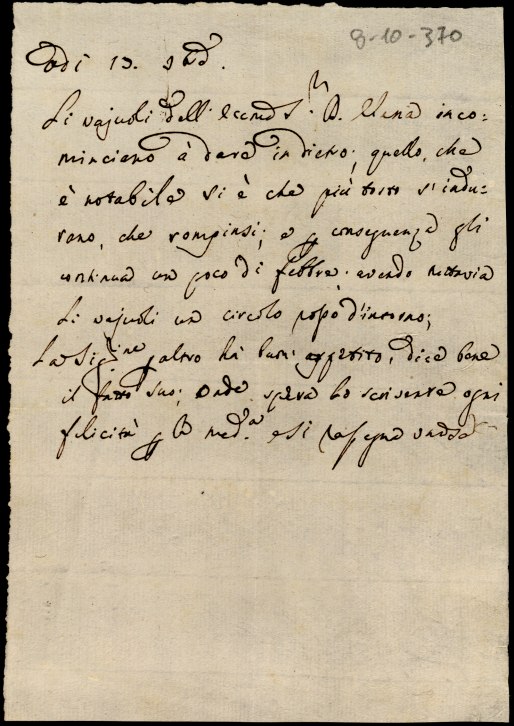 8-10-370
Adi 13. d.º
Li vajuoli dell' Eccma S.ra D. Elena inco:
minciano à dare indietro; quello, che
è notabile si è che più tosto s' indu:
rano, che rompinsi; e p conseguenza gli
continua un poco di febbre. avendo tuttavia
Li vajuoli un circolo roso d'intorno;
La Sig.ina p altro hà buon appetito, dice bene
il fatto suo; onde spera lo scrivente ogni
felicità p la med.a e si rassegna